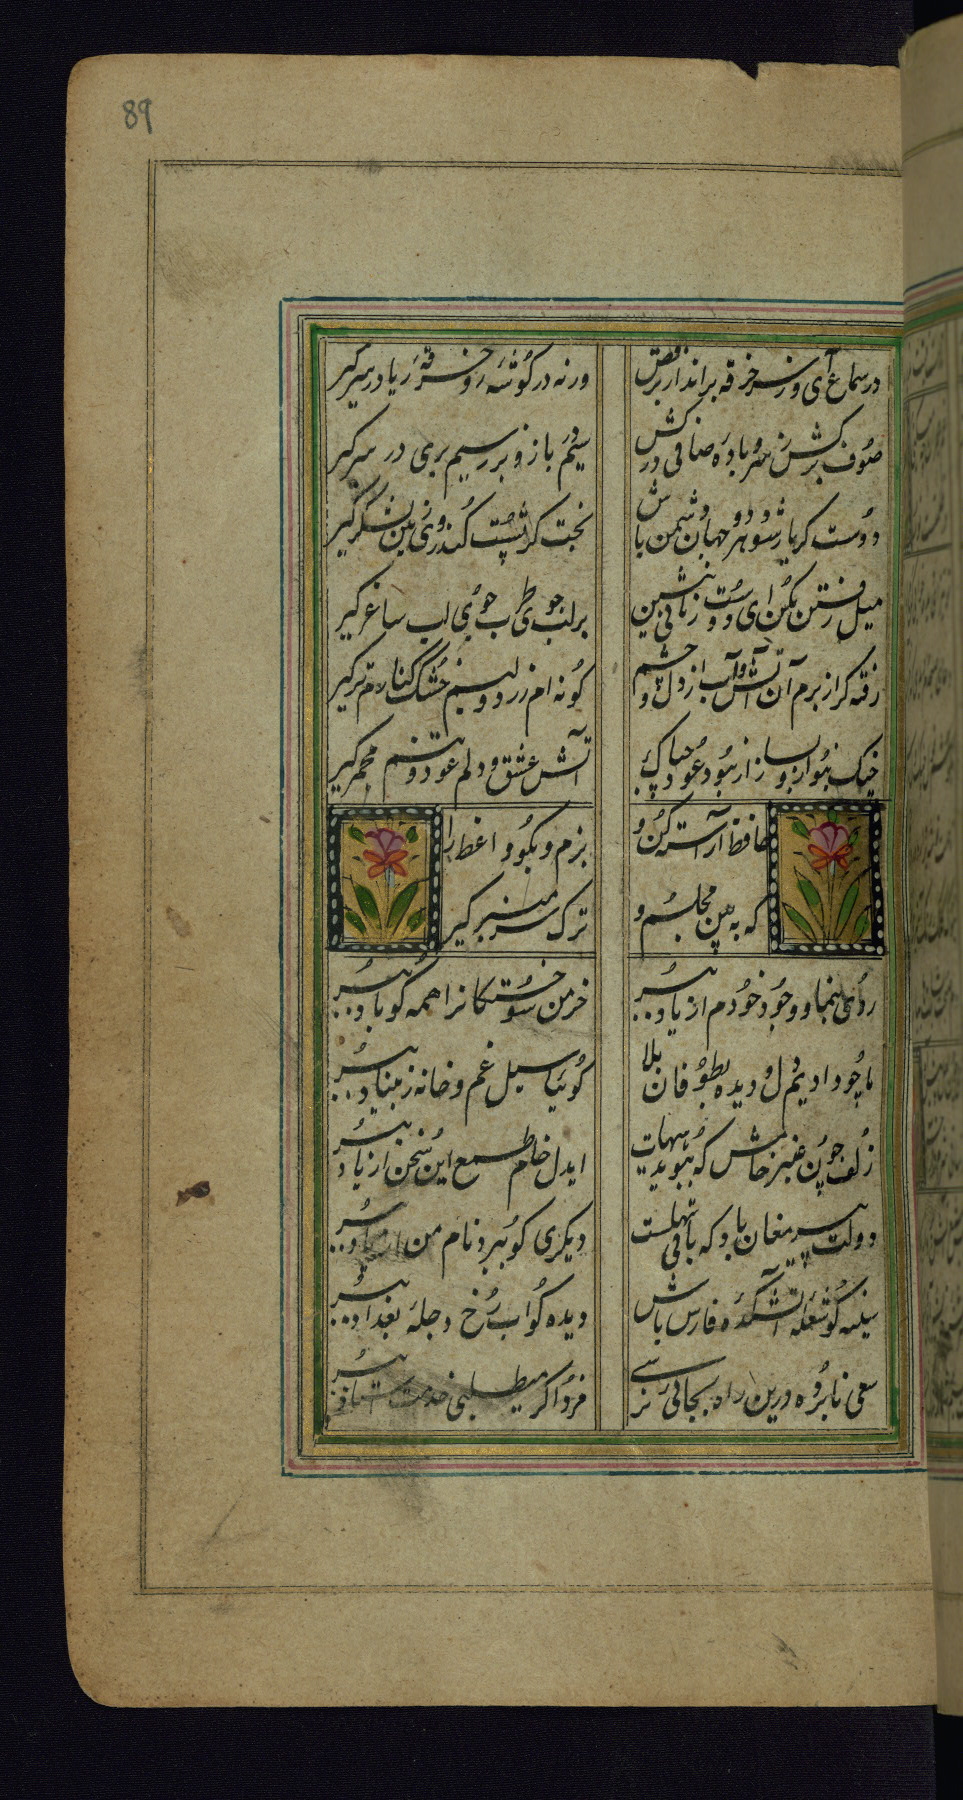 89
در سماع آی و ز سر خرقه برانداز و برقص
ورنه در گوشه رو و خرقه ریا در سر گیر
صوف برکش ز سر و باده صافی درکش
سیم در باز و بزر سیم بری در بر گیر
دوست کو یار شو و هر دو جهان دشمن باش
بخت کو پشت کن و روی زمین لشکر گیر
میل رفتن مکن ای دوست زمانی بنشین
بر لب جوی طرب جوی و لب ساغر گیر
رفته گیر از برم آن آتش و آب از دل و چشم
گونه ام زرد و لبم خشک و کنارم تر گیر
چنگ بنواز و بساز ار نبود عود چه باک
آتش عشق و دلم عود و تنم مجمر گیر
حافظ آراسته کن بزم و بگو واعظ را
که ببین مجلسم و ترک سر منبر گیر
روی بنما و وجود خودم از یاد ببر
خرمن سوختگانرا همه گو باد ببر
ما چو دادیم دل و دیده بطوفان بلا
گو بیا سیل غم و خانه ز بنیاد ببر
زلف چون عنبر خامش که ببوید هیهات
ایدل خام طمع این سخن از یاد ببر
دولت پیر مغان باد که باقی سهلست
دیگری گو برو نام من از یاد ببر
سینه گو شعله آتشکده فارس بکش
دیده گو آب رخ دجله بغداد ببر
سعی نابرده درین راه بجائی نرسی
مزد اگر میطلبی خدمت استاد ببر